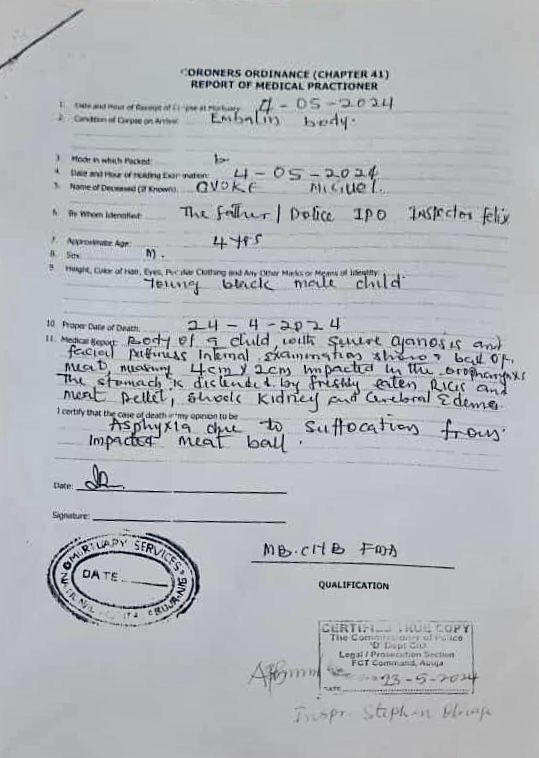 CORONERS ORDINANCE (CHAPTER 41)
REPORT OF MEDICAL PRACTIONER
1. Date and Hour of Receipt of Corpse at Mortuary: 4-05-2024
2. Condition of Corpse on Arrival: Embalm body.
3. Mode in which Packed:
4. Date and Hour of Holding Examination: 4-05-2024
5. Name of Deceased (If Known): OVOKE MIGUEL.
6. By Whom Identified: The father/Police IPO Inspector felix
7. Approximate Age: 4yrs
8. Sex: M.
9. Height, Color of Hair, Eyes, Peculiar Clothing and Any Other Marks or Means of Identity:
Young black male child
10. Proper Date of Death: 24-4-2024
11. Medical Report: Body of a child with severe cyanosis and
facial puffiness Internal examination shows ball of
meat, measuring 4cm x 2cm impacted in the oropharynxs
The stomach is distended by freshly eaten Rice and
meat pellet, shock kidney and Cerebral Edema.
I certify that the case of death in my opinion to be
Asphyxia due to suffocation from
Impacted meat ball.
Date:
Signature:
MORTUARY SERVICES
DATE
MB.CHB
QUALIFICATION
CERTIFIED TRUE COPY
The Commissioner of Police
'D' Dept CID
Legal / Prosecution Section
FCT Command, Abuja
DATE 23-5-2024
Inspr. Stephen